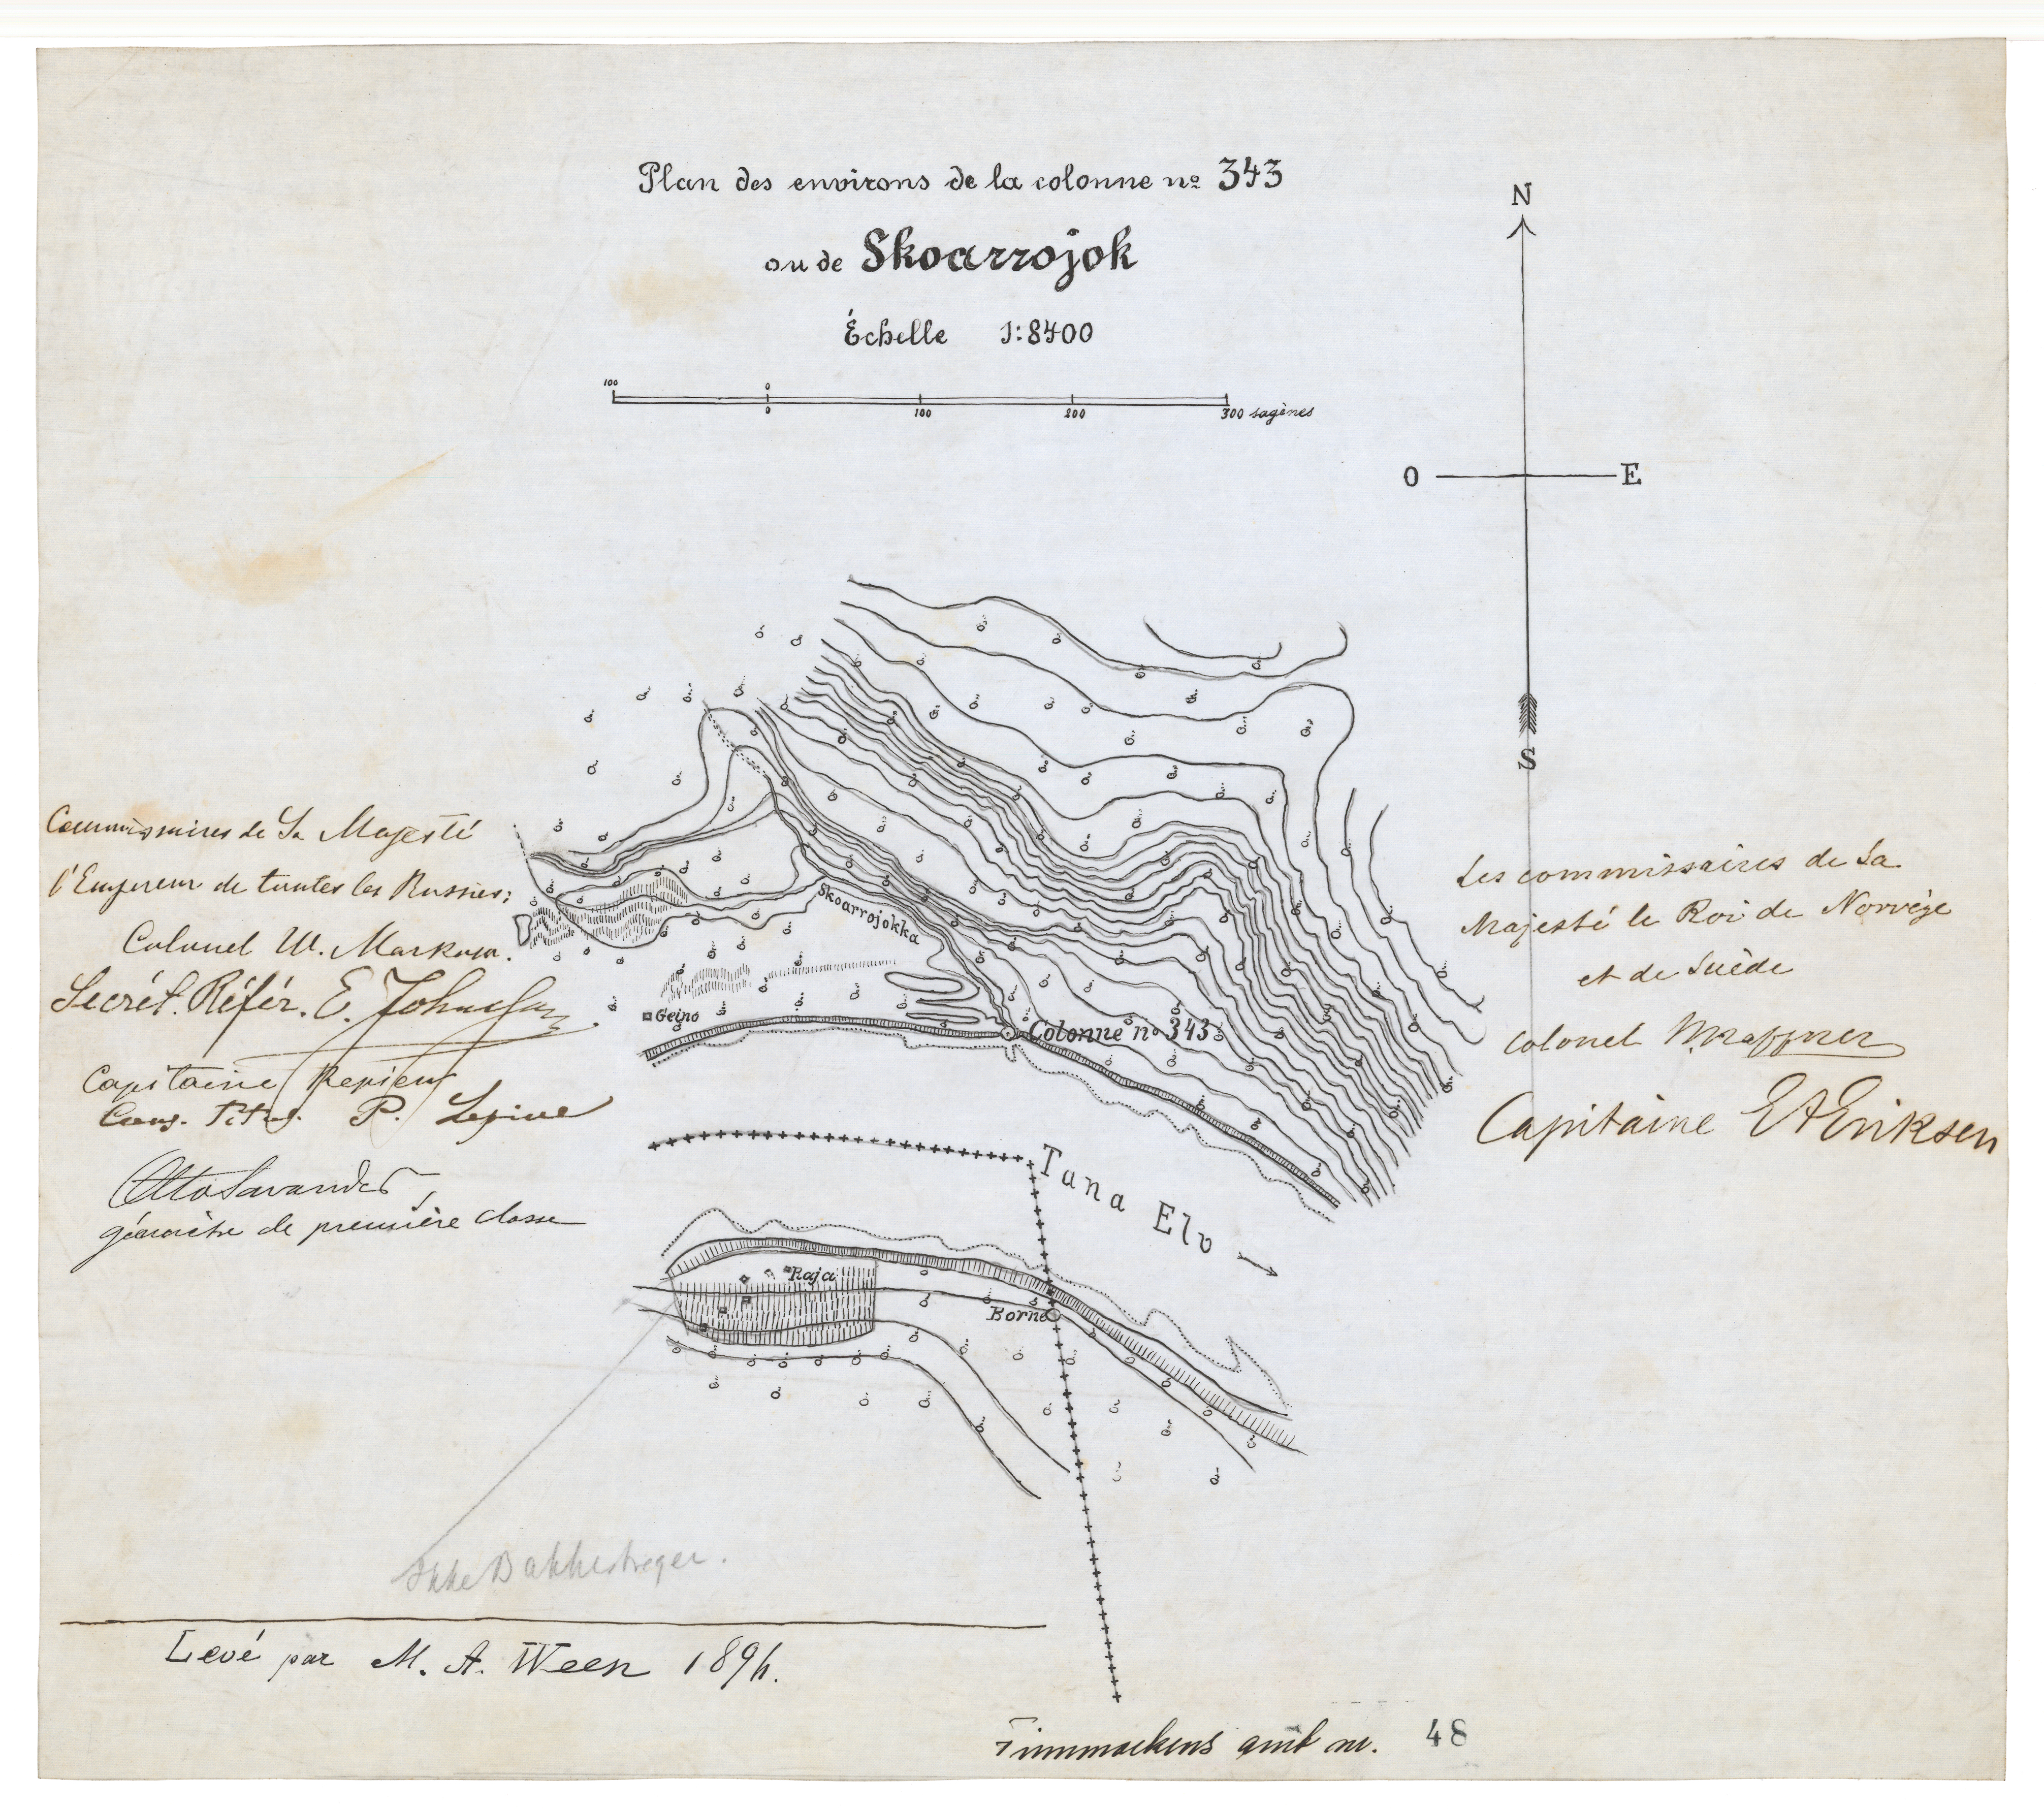 Plan des environs de la colonne no 343
ou de Skoarrojok
Échelle 1:8400
100 0
0 100 200 300 sagènes
N
O E
S
Commissaires de Sa Majesté
l'Empereur de toutes les Russies:
Colonel W.
Secrét. Référ. E.
Capitaine
P.
Otto Savander
géomètre de première classe
Les commissaires de Sa
Majesté le Roi de Norvège
et de Suède
Colonel
Capitaine Eriksen
Skoarrojokka
Geino
Colonne no 343
Tana Elv
Raja
Borne
Ikke Bakkestreger.
Levé par M. A. Ween 1896.
Finmarkens amt nr. 48